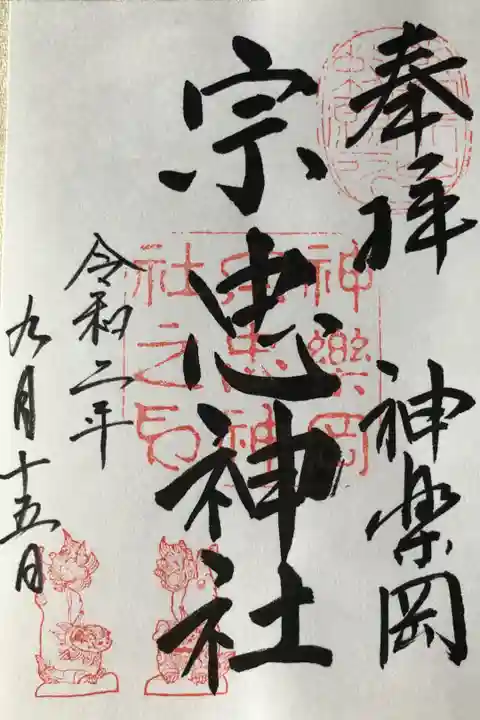 奉拝
神楽岡
宗忠神社
令和二年
九月十五日
神樂岡
宗忠神
社之印